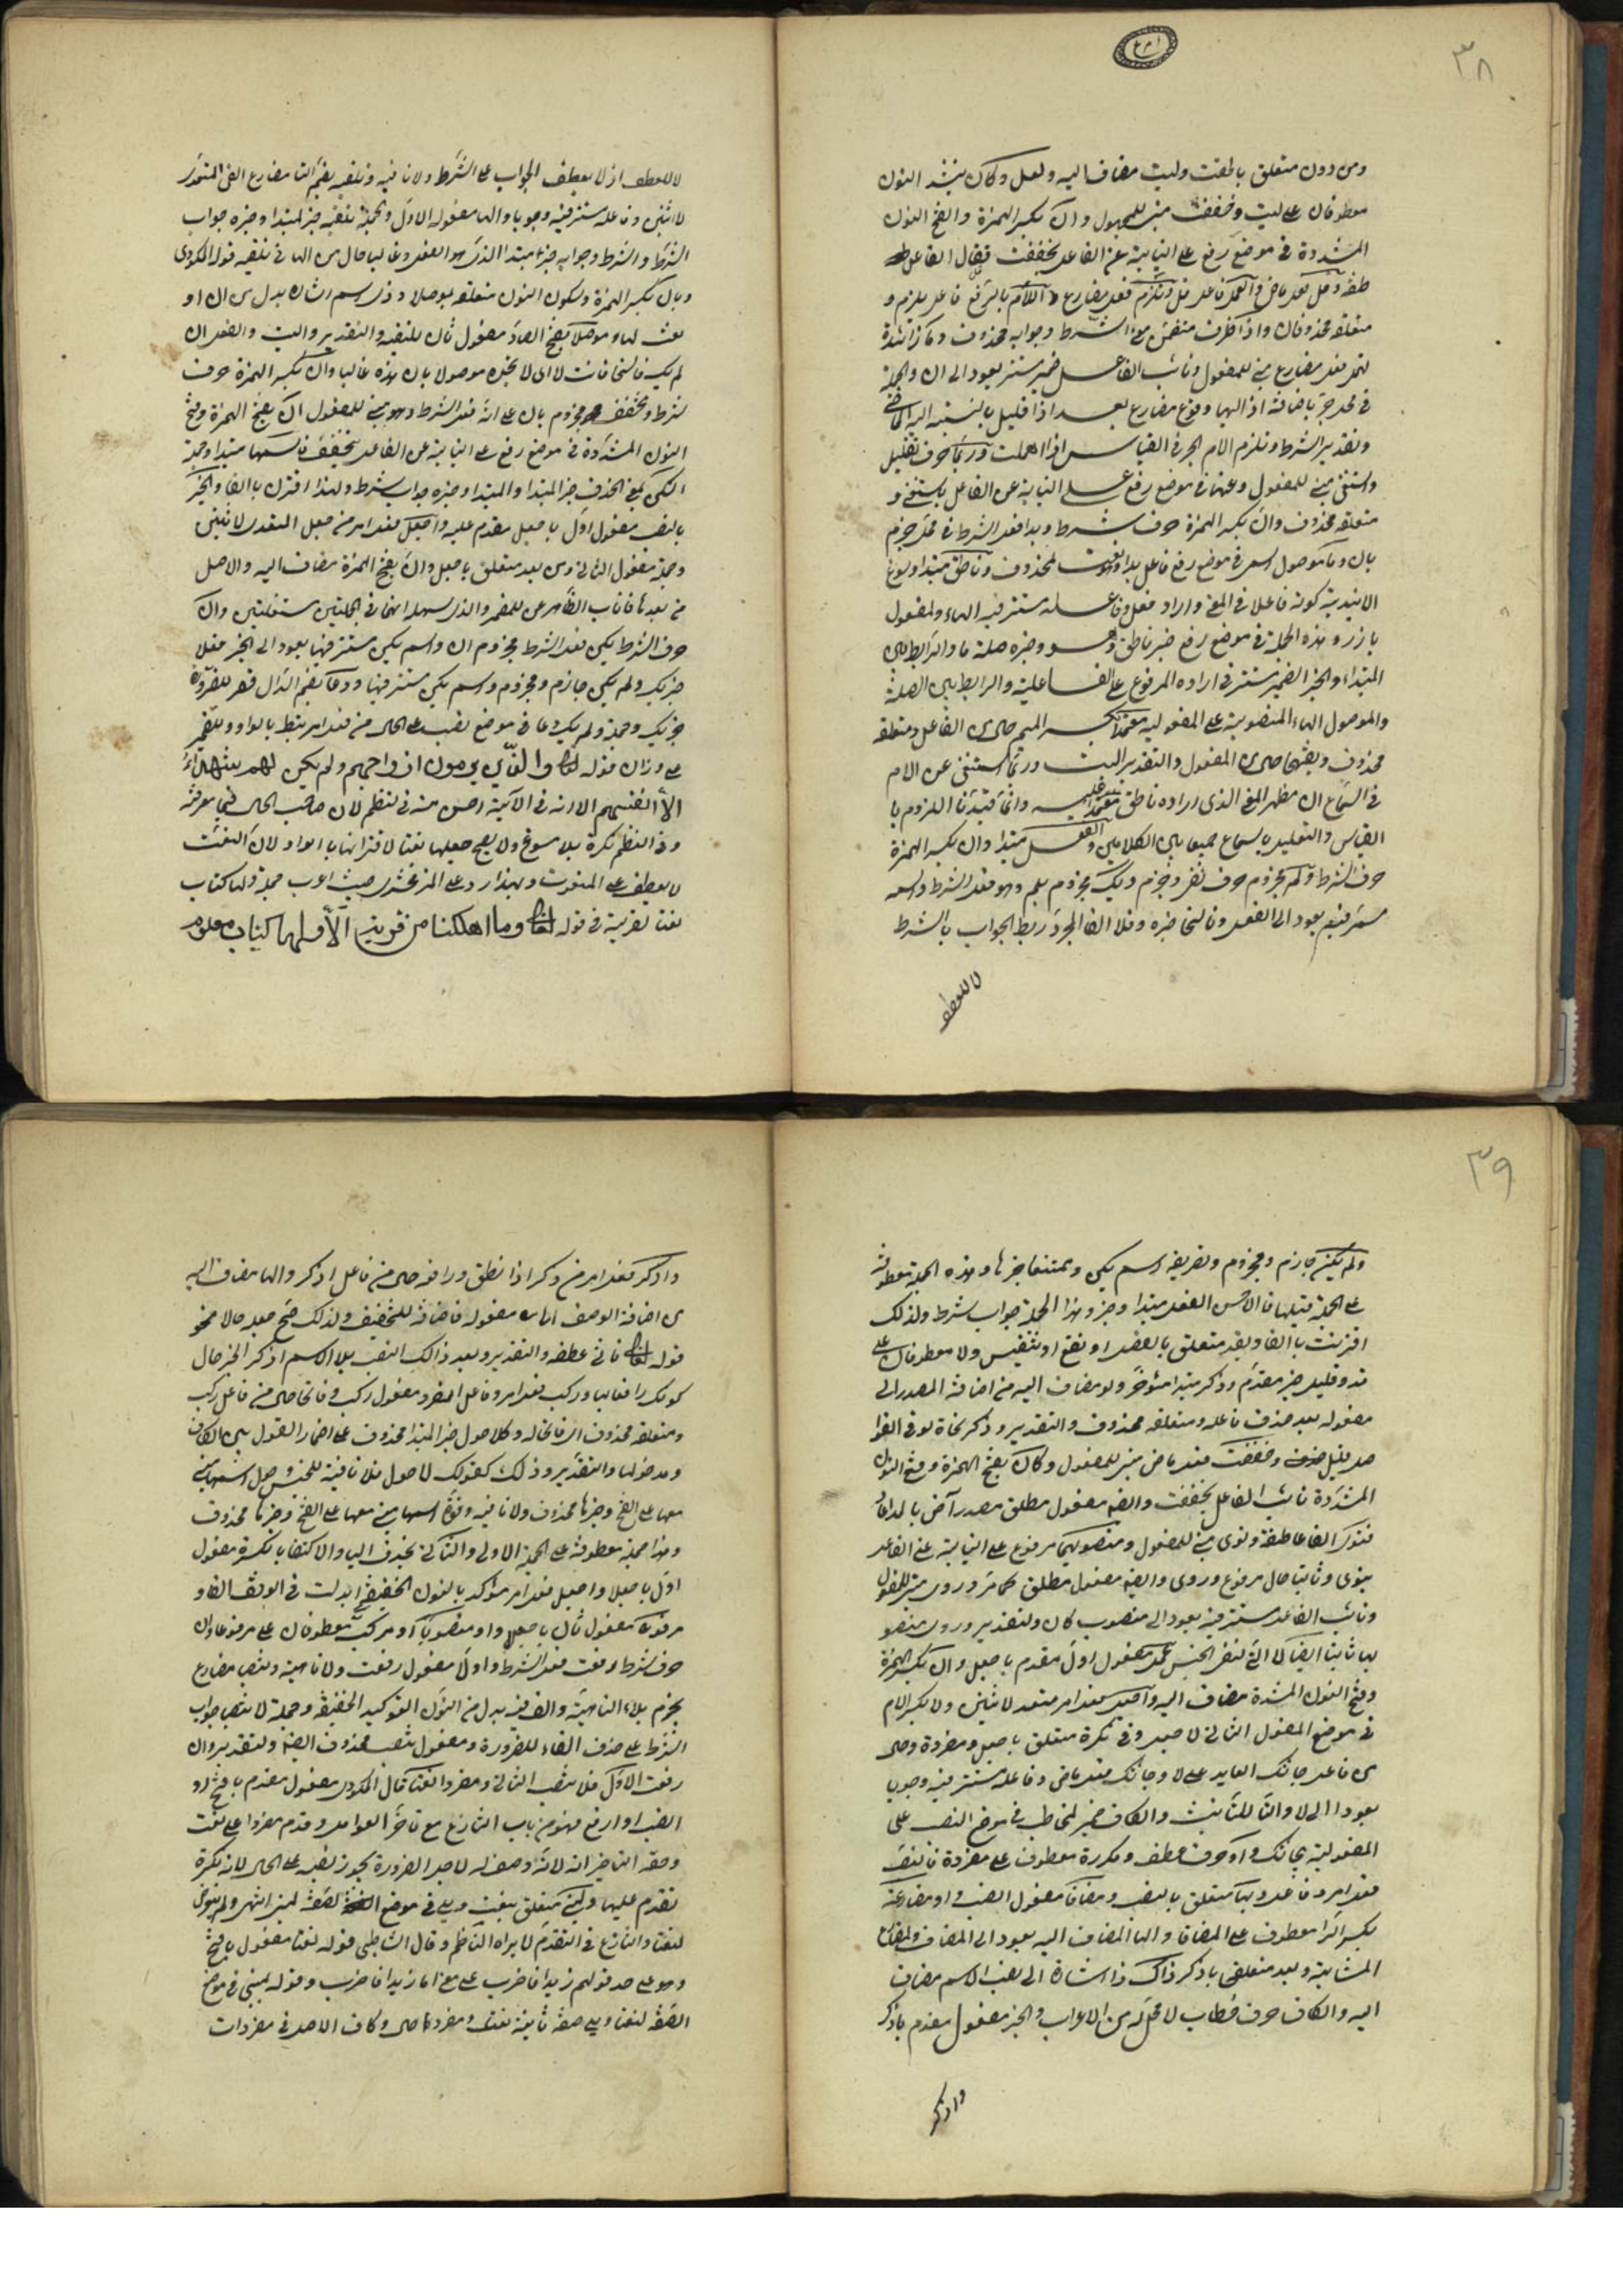 ٣٨
ومن دون متعلق بالغت وليت مضاف اليه ولعل وكأن بتشديد النون
معطوفان على ليت وخففت مبني للمجهول وان بكسر الهمزة والفتح النون
المشددة في موضع رفع على النيابة عن الفاعل بخففت فقل الفا عاطفة
وقل فعل ماض والعمل فاعل قل وتلزم فعل مضارع واللام بالرفع فاعل يلزم و
متعلقه محذوفان واذا ظرف متضمن معنى الشرط وجوابه محذوف وما زائدة
تهمل فعل مضارع مبني للمفعول ونائب الفاعل ضمير مستتر يعود الى ان والجملة
في محل جر باضافة اذا اليها وقوع مضارع بعد اذا قليل بالنسبة الى الماضي
وتقدير الشرط وتلزم الام الجر في القياس اذا اهملت وربما حرف تقليل
واستغني مبني للمفعول وعنها في موضع رفع على النيابة عن الفاعل باستغني و
متعلقه محذوف وان بكسر الهمزة حرف شرط وبدا فعل الشرط في محل جزم
بان وما موصول اسمي في موضع رفع فاعل بدا لمحذوف وناطق مبتدا وسوغ
الابتدا به كونه فاعلا في المعنى واراد فعل وفاعله مستتر فيه الهاء والمفعول
بارز وهذه الجملة في موضع رفع خبر ناطق وهو وخبره صلة ما والرابط بين
المبتداء والخبر الضمير مستتر في اراده المرفوع على الفاعلية والرابط بين الصلة
والموصول الهاء المنصوبة على المفعولية معتمدا بكسر الميم حال من الفاعل ومتعلقه
محذوف وبفتحها حال من المفعول والتقدير البيت وربما استغني عن الام
في السماع ان مظهر المعنى الذي اراده ناطق معتمدا عليه وانما قيدنا اللزوم با
القياس والتعليل بالسماع جميعا بين الكلامين والفعل مبتدا وان بكسر الهمزة
حرف الشرط ولم يجزوم حرف نفي وجزم ويك مجزوم بلم وهو فعل الشرط واسمه
مستتر فيه يعود الى الفعل وناسخا خبره وفلا الفا لمجرد ربط الجواب بالشرط
لا للعطف
لا للعطف اذ لا يعطف الجواب على الشرط ولا نافيه وتلفيه بضم التا مضارع الفى المتعدي
لاثنين وفاعله مستتر فيه وجوبا والها مفعوله الاول وجملة تلفيه خبر المبتدا وخبره جواب
الشرط والشرط وجوابه خبر مبتدا الذي هو الفعل وغالبا حال من الها في تلفيه قوله المكودي
وبان بكسر الهمزة وسكون النون متعلقه بموصلا وذي اسم اشاره بدل من ان او
نعت لها وموصلا بفتح الصاد مفعول ثان لتلفيه والتقدير والبيت والفعل ان
لم يك ناسخا فانت لا اي لا تجده موصولا بان هذه غالبا وان بكسر الهمزة حرف
شرط وتخفف مجزوم بان على انه فعل الشرط وهو مبني للمفعول ان بفتح الهمزة وفتح
النون المشددة في موضع رفع على النيابة عن الفاعل بتخفف فاسمها مبتدا وجملة
استكن بمعنى الحذف خبر المبتدا والمبتدا وخبره جواب شرط ولهذا اقترن بالفا والخبر
بالنصب مفعول اول باجعل مقدم عليه واجعل فعل امر من جعل المتعدي لاثنين
وجملة مفعول الثاني ومن بعد متعلق باجعل وان بفتح الهمزة مضاف اليه والاصل
من بعدها فاناب الظاهر عن المضمر والذي سهله انهما في الجملتين مستقلتين وان
حرف الشرط يكن فعل الشرط مجزوم ان واسم يكن مستتر فيها يعود الى الخبر فعلا
خبر يكن ولم يكن جازم ومجزوم واسم يكن مستتر فيها ودعا بضم الدال قصر للضرورة
خبر يكن وجملة ولم يكن دعا في موضع نصب على الحال من فعلا مرتبط بالواو والضمير
على وزان قوله تعالى والذين يرمون ازواجهم ولم يكن لهم شهداء
الا انفسهم الا انه في الاية احسن منه في النظم لان صاحب الحال فيها معرفة
وفي النظم نكرة بلا مسوغ ولا يصح جعلها نعتا لاقترانها بالواو لان النعت
لا يعطف على المنعوت وبهذا رد على الزمخشري حيث اعرب جملة ولها كتاب
نعتا لقرية في قوله تعالى وما اهلكنا من قرية الا ولها كتاب معلوم
٣٩
ولم يكن جازم ومجزوم وتصريفه اسم يكن وممتنعا خبرها وهذه الجملة معطوفة
على الجملة قبلها فالاحسن الفصل مبتدا وخبر وهذا الجملة جواب شرط ولذلك
اقترنت بالفا وبقد متعلق بالفصل او نفي او تنفيس ولا معطوفان على
قد وقليل خبر مقدم وذكر مبتدا مؤخر ولو مضاف اليه من اضافة المصدر الى
مفعوله بعد حذف فاعله ومتعلقه محذوف والتقدير وذكر نحاة لو في الفوا
صل قليل وخففت فعل ماض مبني للمفعول وكأن بفتح الهمزة وفتح النون
المشددة نائب الفاعل بخففت وايضا مفعول مطلق مصدر آض بالمد اذا
فنوى الفا عاطفة ونوى مبني للمفعول ومنصوبها مرفوع على النيابة عن الفاعل
بنوى وثابتا حال مرفوع وروى وايضا مفعول مطلق كما مر وروى مبني للمفعول
ونائب الفاعل مستتر فيه يعود الى منصوب كان والتقدير وروى منصو
بها ثابتا ايضا لا التي لنفي الجنس عمل مفعول اول مقدم باجعل وان بكسر الهمزة
وفتح النون المشددة مضاف اليه واجعل فعل امر متعد لاثنين وللا بكسر الام
في موضع المفعول الثاني لاجعل وفي نكرة متعلق باجعل ومفردة حال
من فاعل جاءتك العايد على لا وجاءتك فعل ماض وفاعله مستتر فيه وجوبا
يعود الى لا والتا للتأنيث والكاف ضمير المخاطب في موضع النصب على
المفعولية بجاءتك واو حرف عطف ومكررة معطوف على مفردة فانصب
فعل امر وفاعل وبها متعلق بانصب ومضافا مفعول انصب واو مضارعه
بكسر الرا معطوف على المضاف والها المضاف اليه يعود الى المضاف والمضارع
المشابه وبعد متعلق باذكر ذاك ذا اشارة الى نصب الاسم مضاف
اليه والكاف حرف خطاب لا محل له من الاعراب والخبر مفعول مقدم باذكر
واذكر
واذكر فعل امر من ذكر اذا نطق ورافعه حال من فاعل اذكر والها مضاف اليه
من اضافة الوصف الى مفعوله فاضافة للتخفيف ولذلك صح جعله حالا نحو
قوله تعالى ثاني عطفه والتقدير وبعد ذلك النصب بلا الاسم اذكر الخبر حال
كونك رافعا لها وركب فعل امر وفاعل المفرد مفعول ركب وفاتحا حال من فاعل ركب
ومتعلقه محذوف اي فاتحا له وكلا حول خبر المبتدا محذوف على اضمار القول بين الكاف
ومدخولها والتقدير وذلك كقولك لا حول فلا نافية للجنس وحول اسمها مبني
معها على الفتح وخبرها محذوف ولا نافية وقوة اسمها مبني معها على الفتح وخبرها محذوف
وهذا جملة معطوفة على الجملة الاولى والثاني بحذف اليا والاكتفا بالكسرة مفعول
اول باجعلا واجعل فعل امر مؤكد بالنون الخفيفة ابدلت في الوقف الفا و
مرفوعا مفعول ثان باجعل واو منصوبا او مركبا معطوفان على مرفوعا وان
حرف شرط رفعت فعل الشرط واولا مفعول رفعت ولا ناهية وتنصبا مضارع
يجزم بلاء الناهية والفه بدل من النون التوكيد الخفيفة وجملة لا تنصبا جواب
الشرط على حذف الفاء للضرورة ومفعول تنصب محذوف ايضا والتقدير وان
رفعت الاول فلا تنصب الثاني ومفردا نعتا قال المكودي مفعول مقدم بافتح او
انصب او ارفع فهو من باب التنازع مع تاخر العوامل وقدم مفردا على نعت
وحقه التاخير انه لانه وصف له لاجل الضرورة يجوز نصبه على الحال لانه نكرة
تقدم عليها ولمبني متعلق بنعت ويلي في موضع الصفة لمبني انتهى ولم يتولى
لنعتا والتنازع في التقدم لا يراه الناظم وقال الشاطبي قوله نعتا مفعول بافتح
وهو على حد قولهم زيدا فاضرب على معنى اما زيدا فاضرب وقوله لمبني في موضع
الصفة لنعتا ويلي صفة ثانية لنعت ومفردا حال وكان الاصل في مفردات